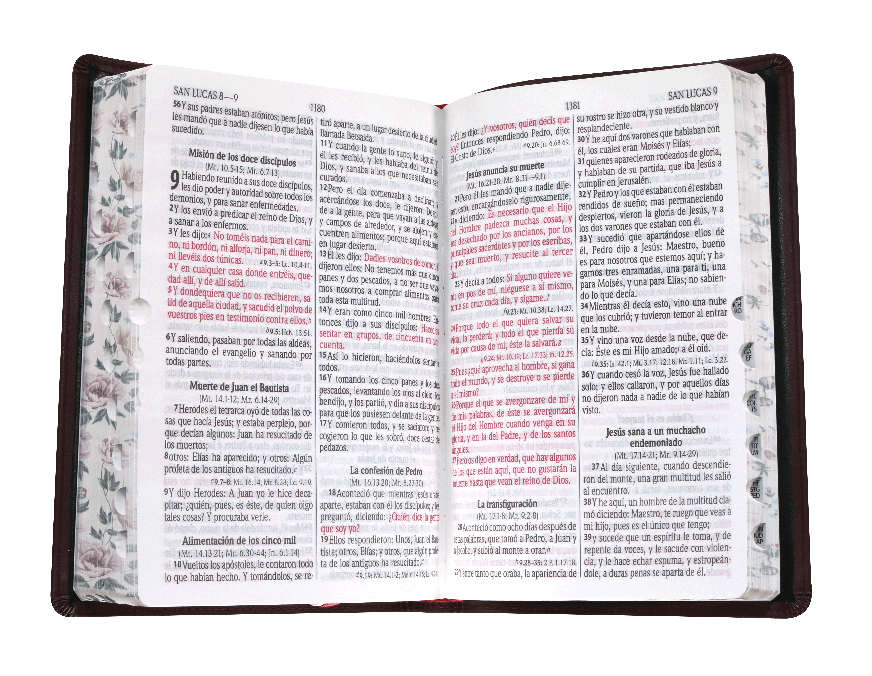 SAN LUCAS 8—9
1180
56Y sus padres estaban atónitos; pero Jesús
les mandó que a nadie dijesen lo que había
sucedido.
Misión de los doce discípulos
(Mt. 10.5-15; Mr. 6.7-13)
9 Habiendo reunido a sus doce discípulos,
les dio poder y autoridad sobre todos los
demonios, y para sanar enfermedades.
2Y los envió a predicar el reino de Dios, y
a sanar a los enfermos.
3Y les dijo: No toméis nada para el cami-
no, ni bordón, ni alforja, ni pan, ni dinero;
ni llevéis dos túnicas.
4Y en cualquier casa donde entréis, que-
dad allí, y de allí salid.
5Y dondequiera que no os recibieren, sa-
lid de aquella ciudad, y sacudid el polvo de
vuestros pies en testimonio contra ellos.
6Y saliendo, pasaban por todas las aldeas,
anunciando el evangelio y sanando por
todas partes.
Muerte de Juan el Bautista
(Mt. 14.1-12; Mr. 6.14-29)
7Herodes el tetrarca oyó de todas las co-
sas que hacía Jesús; y estaba perplejo, por-
que decían algunos: Juan ha resucitado de
los muertos;
8otros: Elías ha aparecido; y otros: Algún
profeta de los antiguos ha resucitado.
9Y dijo Herodes: A Juan yo le hice deca-
pitar; ¿quién, pues, es éste, de quien oigo
tales cosas? Y procuraba verle.
Alimentación de los cinco mil
(Mt. 14.13-21; Mr. 6.30-44; Jn. 6.1-14)
10Vueltos los apóstoles, le contaron todo
lo que habían hecho. Y tomándolos, se re-
tiró aparte, a un lugar desierto de la ciudad
llamada Betsaida.
11Y cuando la gente lo supo, le siguió; y
él les recibió, y les hablaba del reino de
Dios, y sanaba a los que necesitaban ser
curados.
12Pero el día comenzaba a declinar; y
acercándose los doce, le dijeron: Despi-
de a la gente, para que vayan a las aldeas
y campos de alrededor, y se alojen y en-
cuentren alimentos; porque aquí estamos
en lugar desierto.
13Él les dijo: Dadles vosotros de comer. Y
dijeron ellos: No tenemos más que cinco
panes y dos pescados, a no ser que vaya-
mos nosotros a comprar alimentos para
toda esta multitud.
14Y eran como cinco mil hombres. En-
tonces dijo a sus discípulos: Hacedlos
sentar en grupos, de cincuenta en cin-
cuenta.
15Así lo hicieron, haciéndolos sentar a
todos.
16Y tomando los cinco panes y los dos
pescados, levantando los ojos al cielo, los
bendijo, y los partió, y dio a sus discípulos
para que los pusiesen delante de la gente.
17Y comieron todos, y se saciaron; y re-
cogieron lo que les sobró, doce cestas de
pedazos.
La confesión de Pedro
(Mt. 16.13-20; Mr. 8.27-30)
18Aconteció que mientras Jesús oraba
aparte, estaban con él los discípulos; y les
preguntó, diciendo: ¿Quién dice la gente
que soy yo?
19Ellos respondieron: Unos, Juan el Bau-
tista; otros, Elías; y otros, que algún profe-
ta de los antiguos ha resucitado.
1181
SAN LUCAS 9
Él les dijo: ¿Y vosotros, quién decís que
soy? Entonces respondiendo Pedro, dijo:
El Cristo de Dios.
Jesús anuncia su muerte
(Mt. 16.21-28; Mr. 8.31—9.1)
21Pero él les mandó que a nadie dije-
sen esto, encargándoselo rigurosamente,
22y diciendo: Es necesario que el Hijo
del Hombre padezca muchas cosas, y
sea desechado por los ancianos, por los
principales sacerdotes y por los escribas,
y que sea muerto, y resucite al tercer
día.
23Y decía a todos: Si alguno quiere ve-
nir en pos de mí, niéguese a sí mismo,
tome su cruz cada día, y sígame.
24Porque todo el que quiera salvar su
vida, la perderá; y todo el que pierda su
vida por causa de mí, éste la salvará.
25Pues ¿qué aprovecha al hombre, si gana
todo el mundo, y se destruye o se pierde
a sí mismo?
26Porque el que se avergonzare de mí y
de mis palabras, de éste se avergonzará
el Hijo del Hombre cuando venga en su
gloria, y en la del Padre, y de los santos
ángeles.
27Pero os digo en verdad, que hay algunos
de los que están aquí, que no gustarán la
muerte hasta que vean el reino de Dios.
La transfiguración
(Mt. 17.1-8; Mr. 9.2-8)
28Aconteció como ocho días después de
estas palabras, que tomó a Pedro, a Juan y
a Jacobo, y subió al monte a orar.
29Y entre tanto que oraba, la apariencia de
su rostro se hizo otra, y su vestido blanco y
resplandeciente.
30Y he aquí dos varones que hablaban con
él, los cuales eran Moisés y Elías;
31quienes aparecieron rodeados de gloria,
y hablaban de su partida, que iba Jesús a
cumplir en Jerusalén.
32Y Pedro y los que estaban con él estaban
rendidos de sueño; mas permaneciendo
despiertos, vieron la gloria de Jesús, y a
los dos varones que estaban con él.
33Y sucedió que apartándose ellos de
él, Pedro dijo a Jesús: Maestro, bueno
es para nosotros que estemos aquí; y ha-
gamos tres enramadas, una para ti, una
para Moisés, y una para Elías; no sabien-
do lo que decía.
34Mientras él decía esto, vino una nube
que los cubrió; y tuvieron temor al entrar
en la nube.
35Y vino una voz desde la nube, que de-
cía: Éste es mi Hijo amado; a él oíd.
36Y cuando cesó la voz, Jesús fue hallado
solo; y ellos callaron, y por aquellos días
no dijeron nada a nadie de lo que habían
visto.
Jesús sana a un muchacho
endemoniado
(Mt. 17.14-21; Mr. 9.14-29)
37Al día siguiente, cuando descendie-
ron del monte, una gran multitud les salió
al encuentro.
38Y he aquí, un hombre de la multitud cla-
mó diciendo: Maestro, te ruego que veas a
mi hijo, pues es el único que tengo;
39y sucede que un espíritu le toma, y de
repente da voces, y le sacude con violen-
cia, y le hace echar espuma, y estropeán-
dole, a duras penas se aparta de él.